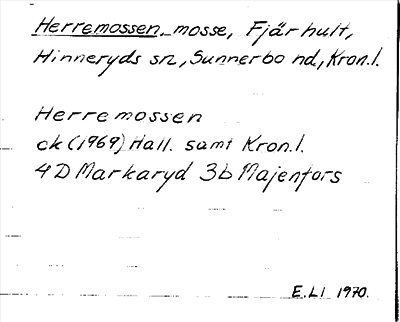 Herremossen, mosse, Fjärhult,
Hinneryds sn, Sunnerbo hd, Kron.l.
Herremossen
ek (1969) Hall. samt Kron.l.
4D Markaryd 3b Majenfors
E.LI 1970.